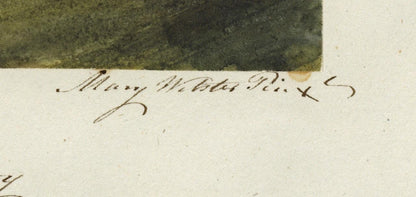 Mary Webster Pinxt
y